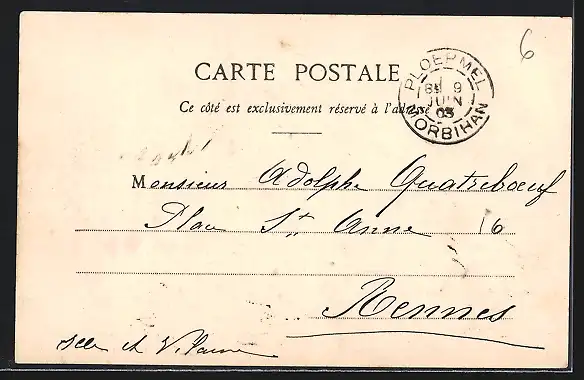 6
CARTE POSTALE
Ce côté est exclusivement réservé à l'adresse
PLOERMEL
9
JUIN
03
MORBIHAN
Monsieur Adolphe Quatreboeuf
Place St Anne 16
Rennes
Ille et Vilaine